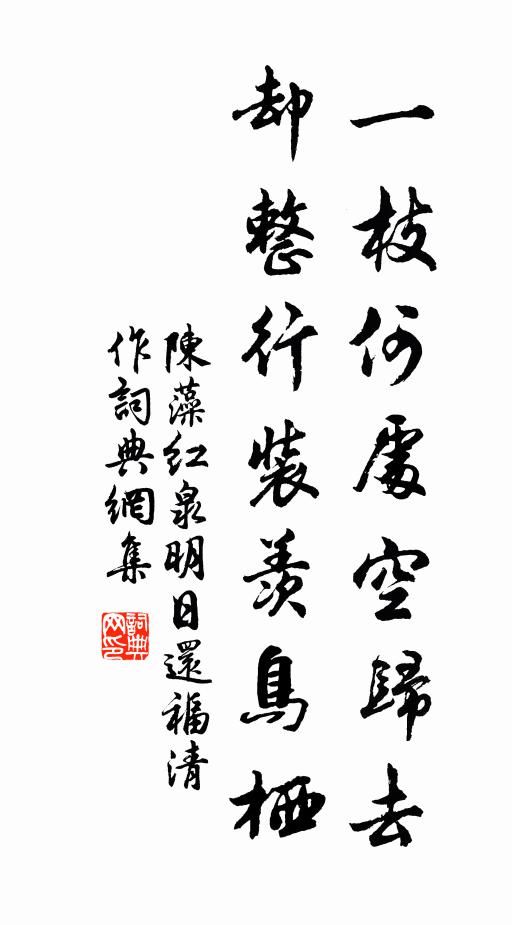 一枝何處空歸去
却整行裝羨鳥栖
陳藻紅泉明日還福清
作詞典網集
詞典网印